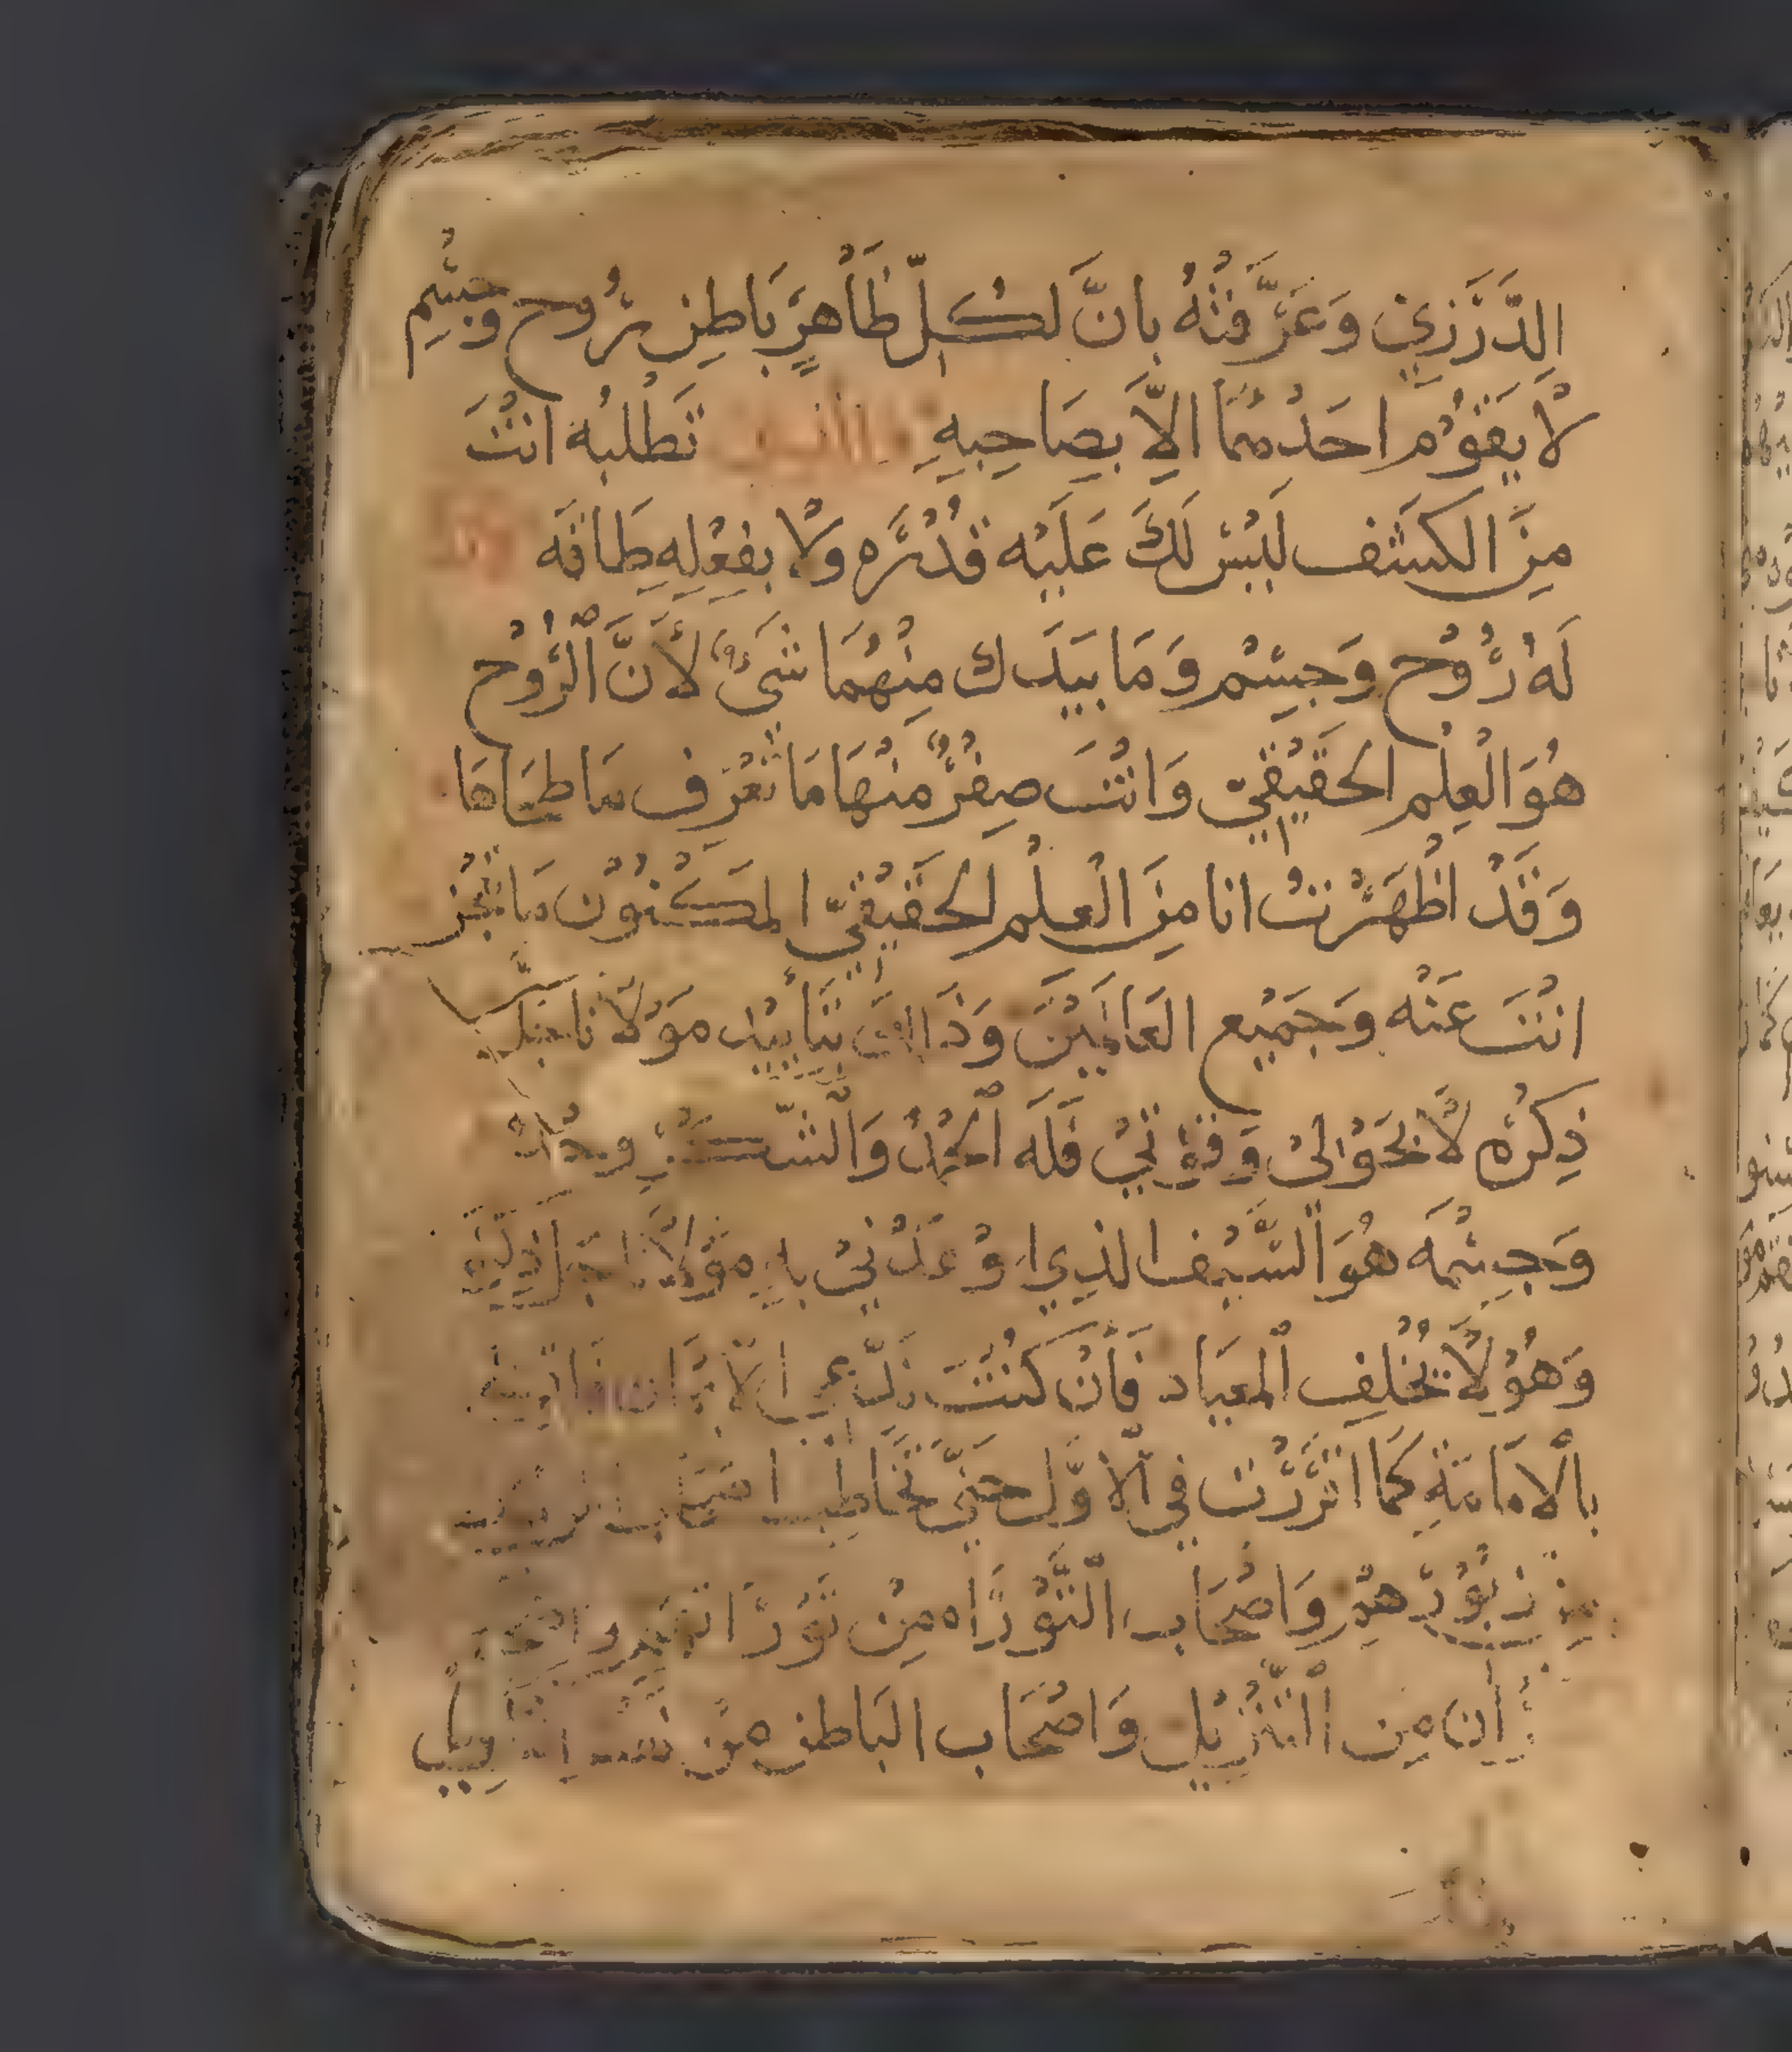 الدَّرَزِي وَعَرَّفْتُهُ بانَّ لكُلّ ظَاهِرٍ بَاطِن رُوح وجِسْم
لا يَقوُم احَدهُمَا الاَّ بِصَاحِبِهِ تَطْلُبُه انْتَ
مِنَ الكَشْف لَيْسَ لَكَ عَلَيْه قُدْرَه ولا بِفِعْلِهِ طَاقَه
لَهُ رُوْح وَجِسْم وَمَا بِيَدَك مِنْهُمَا شَيْءٌ لأَنَّ الرُّوْح
هُوَ الْعِلْم الحَقَيْقِيّ وَانْتَ صِفْرٌ مِنْهَا مَا تَعْرِف مَا طحَاهَا
وَقَدْ اظْهَرْتُ انا مِنَ الْعِلْم الْحَقَيْقِيّ المَكْنُوْن مَا تَعْجَز
انْتَ عَنْه وَجَمِيْع العَالَمِيْنَ وَذَالِكَ بِتَأييْد مَوْلانَا جَلَّ
ذِكْرُه لا بِحَوْلِىْ وَقُوَّتِىْ فَلَه الْحَمْدُ وَالشُّكْر وحْدَهُ
وَجِسْمَه هُوَ السَّيْف الذِي اوْعَدْنِىْ بهِ مَوْلانَا جَلَّ ذِكْرُه
وَهُوْ لاَ يُخْلِف الْمِيْعَاد فَانْ كُنْتَ تَدَّعِي الايْمَان فَاقِرَّ لي
بالاَمَامَةِ كَمَا اقْرَرْت فِي الاَوَّل حَتَّي تُخَاطِب اصْحَاب الزبور
مِنْ زبُوْرِهِم وَاصْحَاب التَّوْرَاه مِنْ تَوْرَاتهم واصْحَاب
القران مِن التَّنْزِيْل وَاصْحَاب البَاطِن مِن نفس التاويل